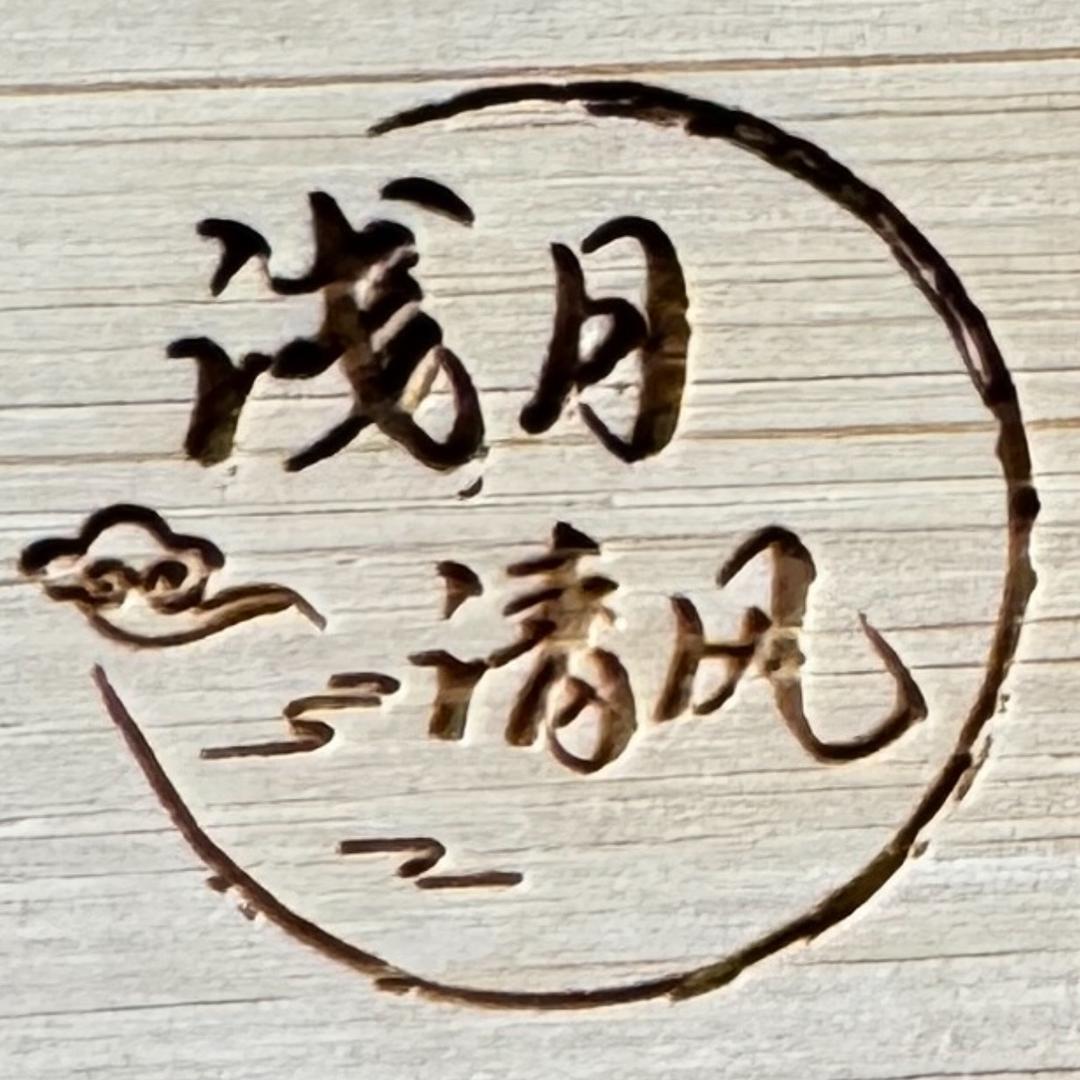 浅月
清风